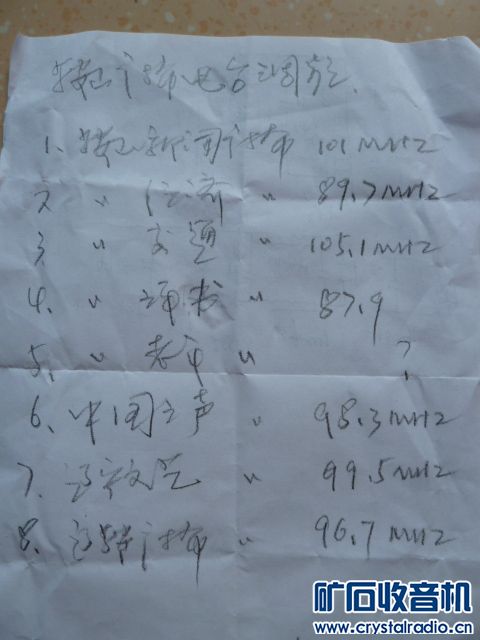 鞍山广播电台调频.
1. 鞍山新闻广播 101 MHZ
2 〃 经济 〃 89.7MHZ
3 〃 交通 〃 105.1MHZ
4. 〃 评书 〃 87.9
5. 〃 〃 ?
6. 中国之声 〃 98.3MHZ
7. 辽宁文艺 〃 99.5MHZ
8. 广播 96.7 MHZ
矿石收音机
www.crystalradio.cn